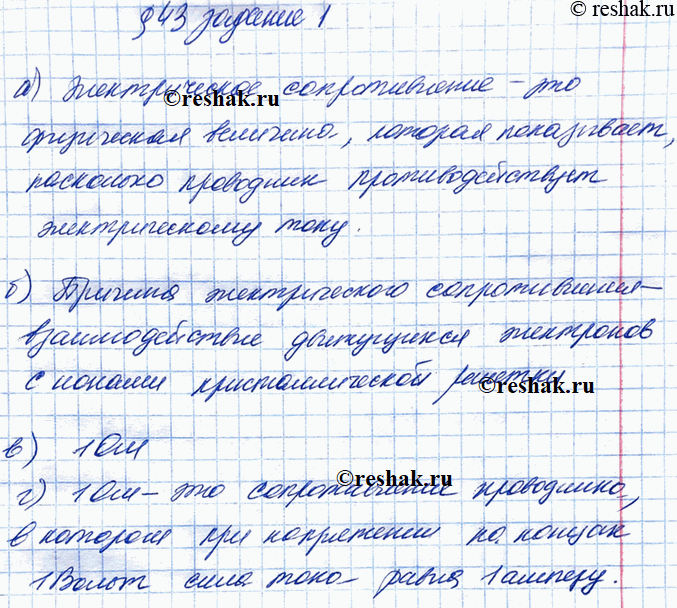 © reshak.ru
§43 задание 1
а) Электрическое сопротивление – это
©reshak.ru
физическая величина, которая показывает,
насколько проводник противодействует
электрическому току.
б) Причина электрического сопротивления –
взаимодействие движущихся электронов
с ионами кристаллической решетки
©reshak.ru
в) 1 Ом
©reshak.ru
г) 1 Ом – это сопротивление проводника,
в котором при напряжении на концах
1 Вольт сила тока равна 1 амперу.
©reshak.ru